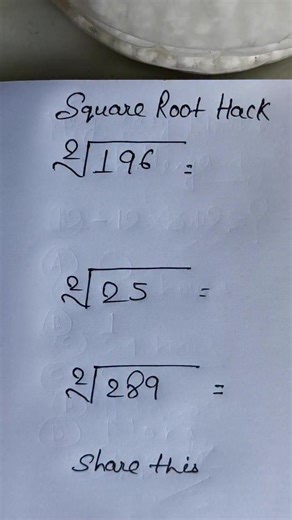 Square Root Hack
²√196 =
²√25 =
²√289 =
Share this